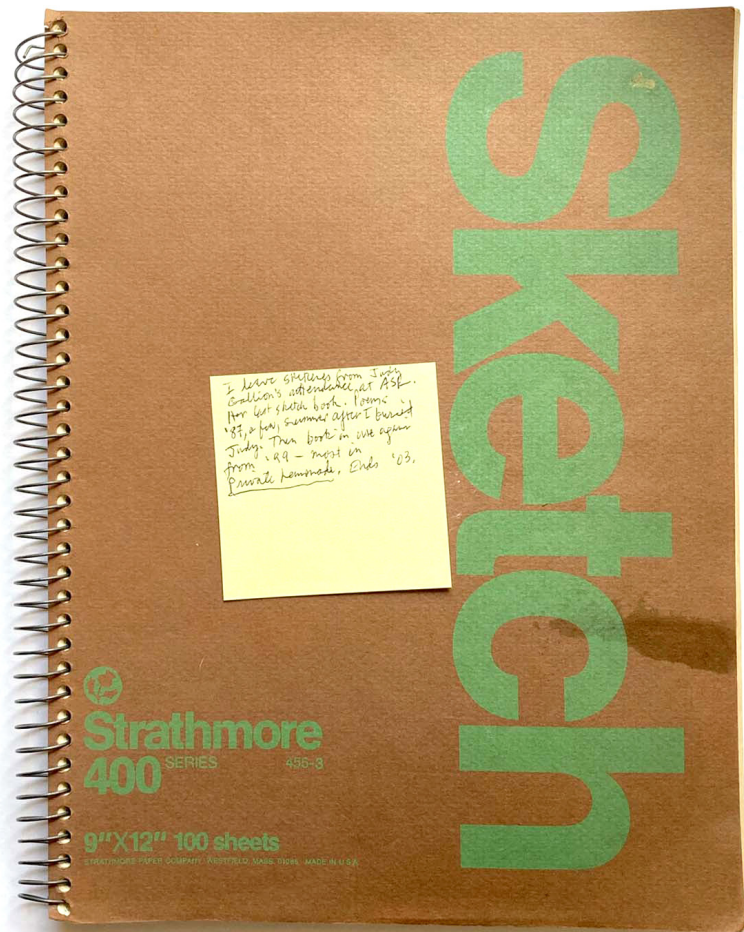 Sketch
I leave sketches from Judy
Gallion's attendance at ASF.
Her last sketch book. Poems
'87, a few, summer after I buried
Judy. Then book in use again
from '99 – most in
Private Lemonade. Ends '03.
Strathmore
400 SERIES 455-3
9"X12" 100 sheets
STRATHMORE PAPER COMPANY, WESTFIELD, MASS. 01085 MADE IN U.S.A.